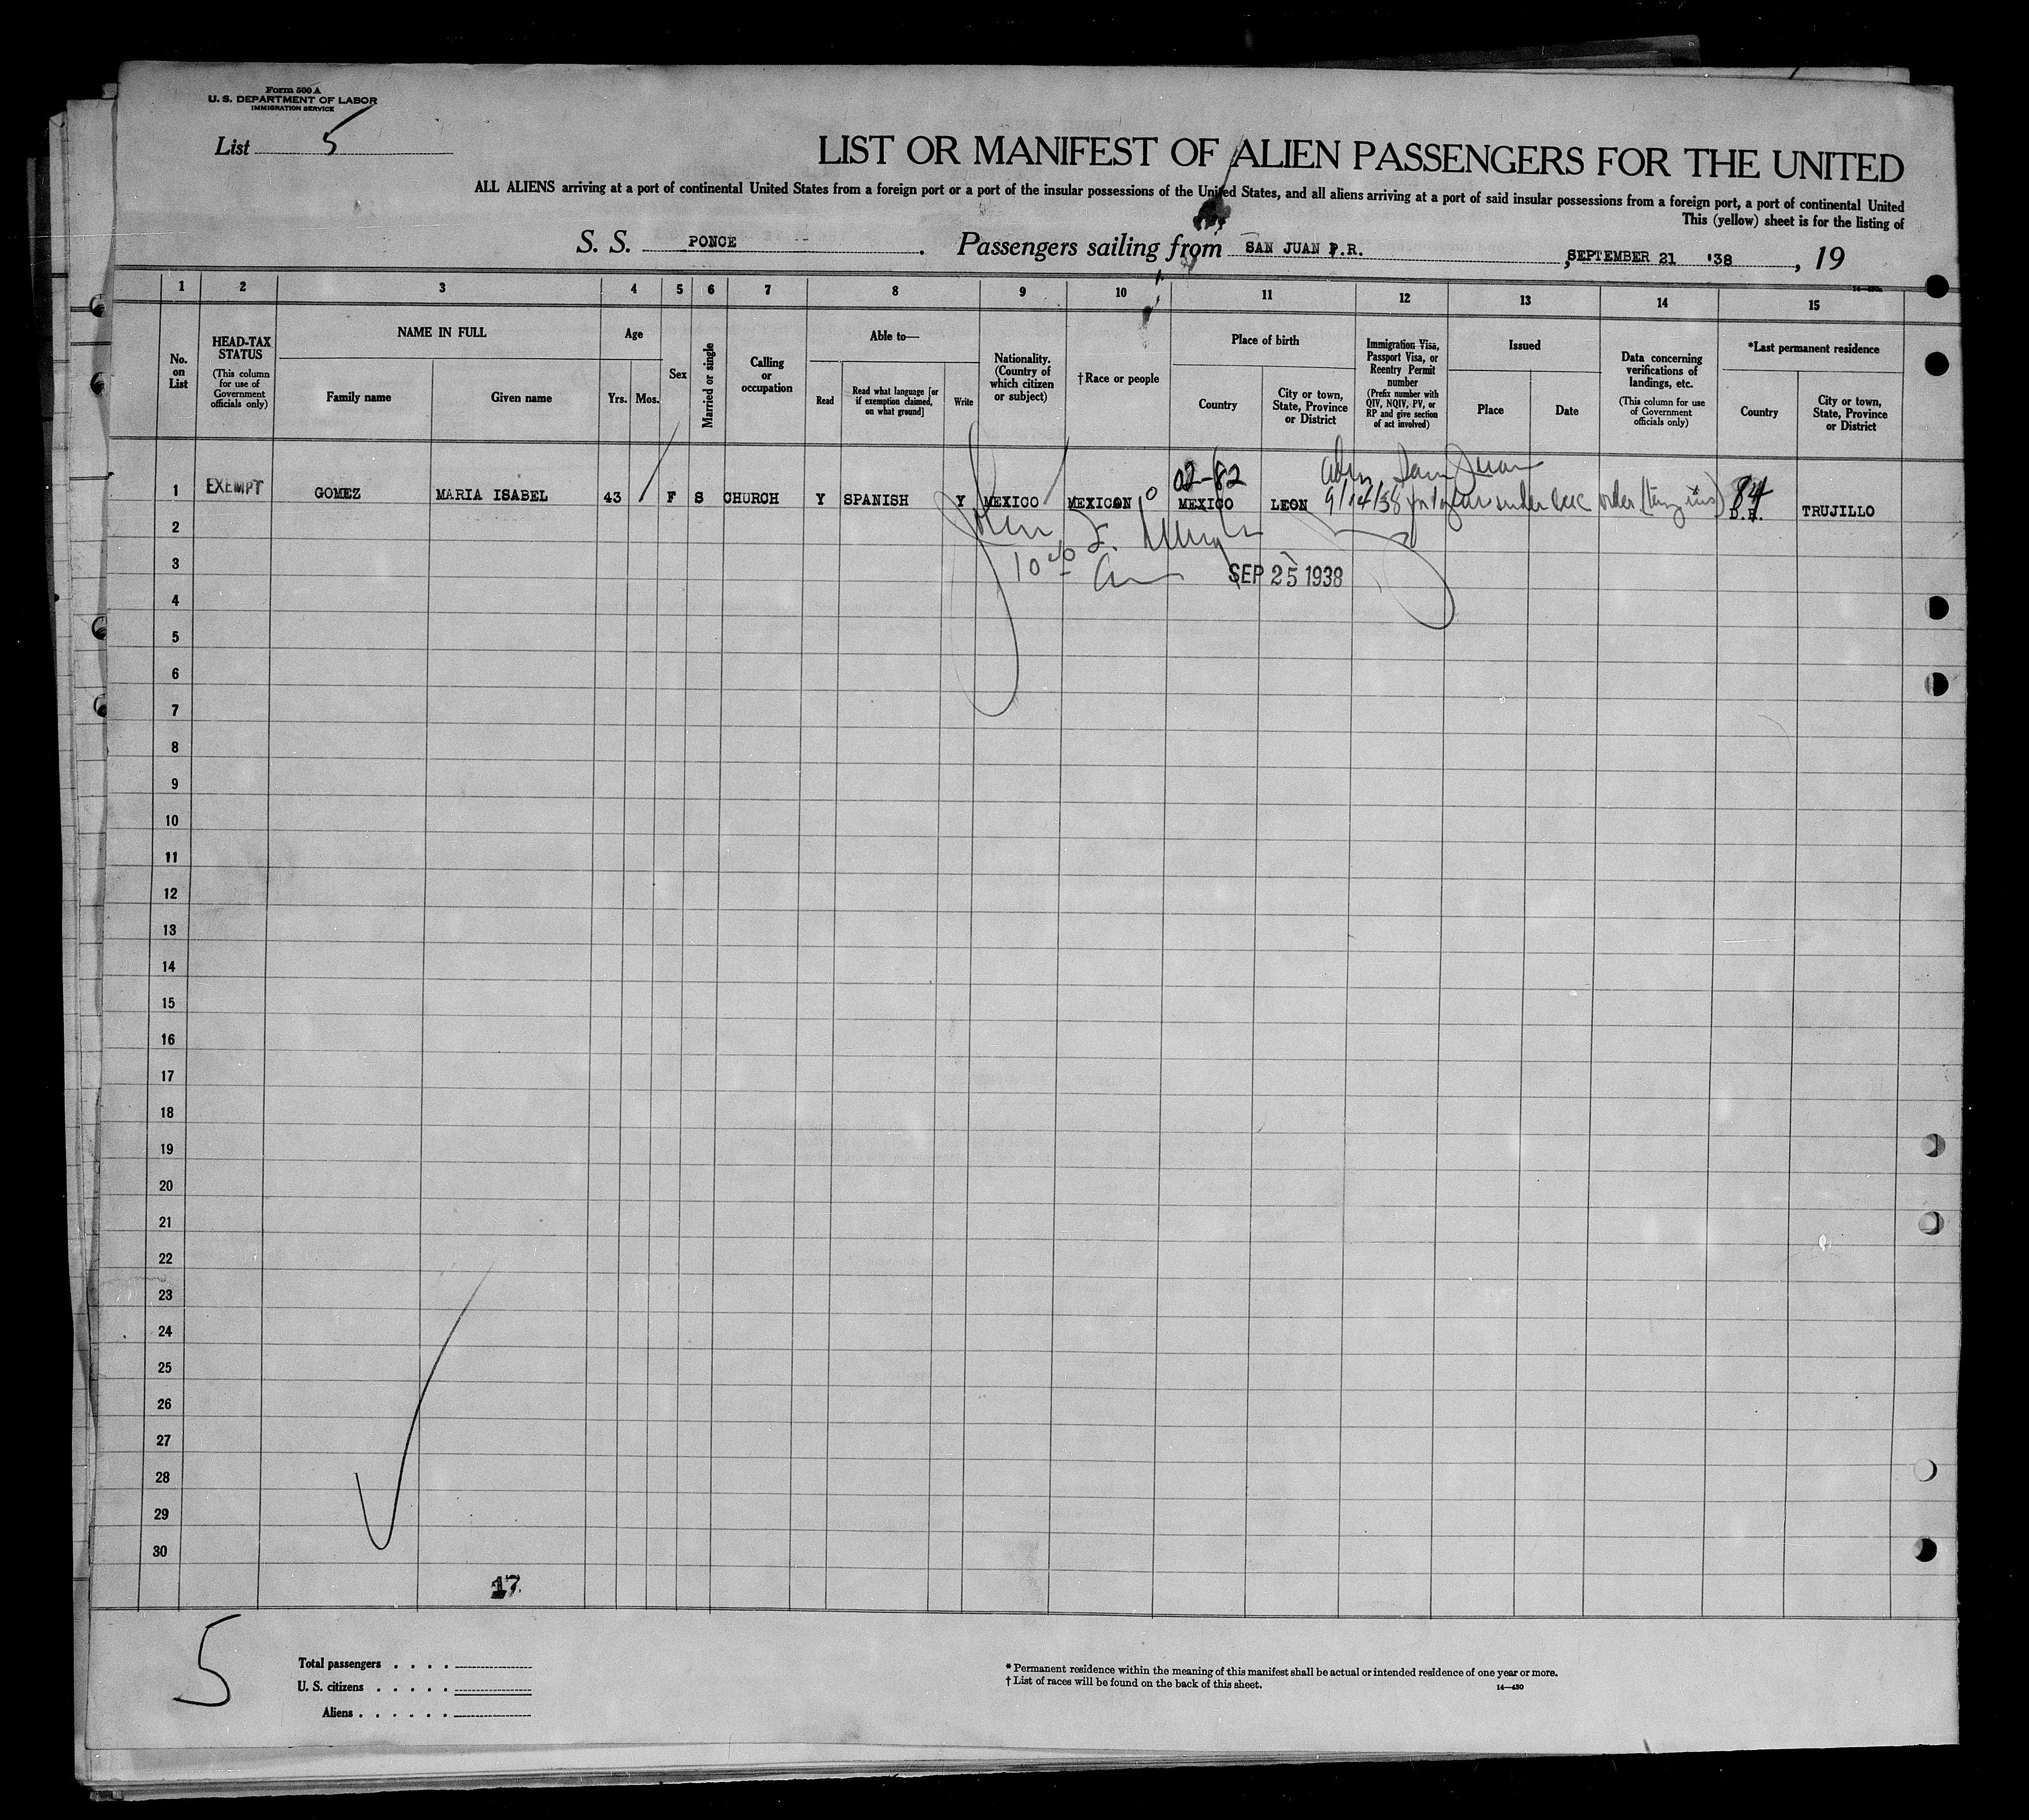 Form 500 A
U. S. DEPARTMENT OF LABOR
IMMIGRATION SERVICE
List 5
LIST OR MANIFEST OF ALIEN PASSENGERS FOR THE UNITED
ALL ALIENS arriving at a port of continental United States from a foreign port or a port of the insular possessions of the United States, and all aliens arriving at a port of said insular possessions from a foreign port, a port of continental United
This (yellow) sheet is for the listing of
S. S. PONCE. Passengers sailing from SAN JUAN P.R., SEPTEMBER 21 '38, 19
1 2 3 4 5 6 7 8 9 10 11 12 13 14 15
No. on List
HEAD-TAX STATUS
(This column for use of Government officials only)
NAME IN FULL
Family name
Given name
Age
Yrs. Mos.
Sex
Married or single
Calling or occupation
Able to—
Read
Read what language [or if exemption claimed, on what ground]
Write
Nationality. (Country of which citizen or subject)
†Race or people
Place of birth
Country
City or town, State, Province or District
Immigration Visa, Passport Visa, or Reentry Permit number
(Prefix number with QIV, NQIV, PV, or RP and give section of act involved)
Issued
Place
Date
Data concerning verifications of landings, etc.
(This column for use of Government officials only)
*Last permanent residence
Country
City or town, State, Province or District
02-82
San Juan
1 EXEMPT GOMEZ MARIA ISABEL 43 F S CHURCH Y SPANISH Y MEXICO MEXICAN MEXICO LEON 9/14/38 under order 84 D.R. TRUJILLO
2
John
3
SEP 25 1938
4
5
6
7
8
9
10
11
12
13
14
15
16
17
18
19
20
21
22
23
24
25
26
27
28
29
30
17
5
Total passengers . . . .
U. S. citizens . . . . .
Aliens . . . . . .
* Permanent residence within the meaning of this manifest shall be actual or intended residence of one year or more.
† List of races will be found on the back of this sheet.
14—430